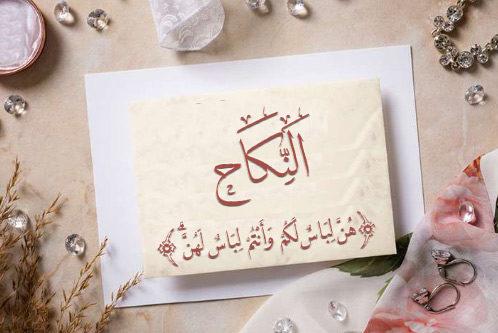 النِّكَاح
﴿هُنَّ لِبَاسٌ لَّكُمْ وَأَنتُمْ لِبَاسٌ لَّهُنَّ ۗ﴾